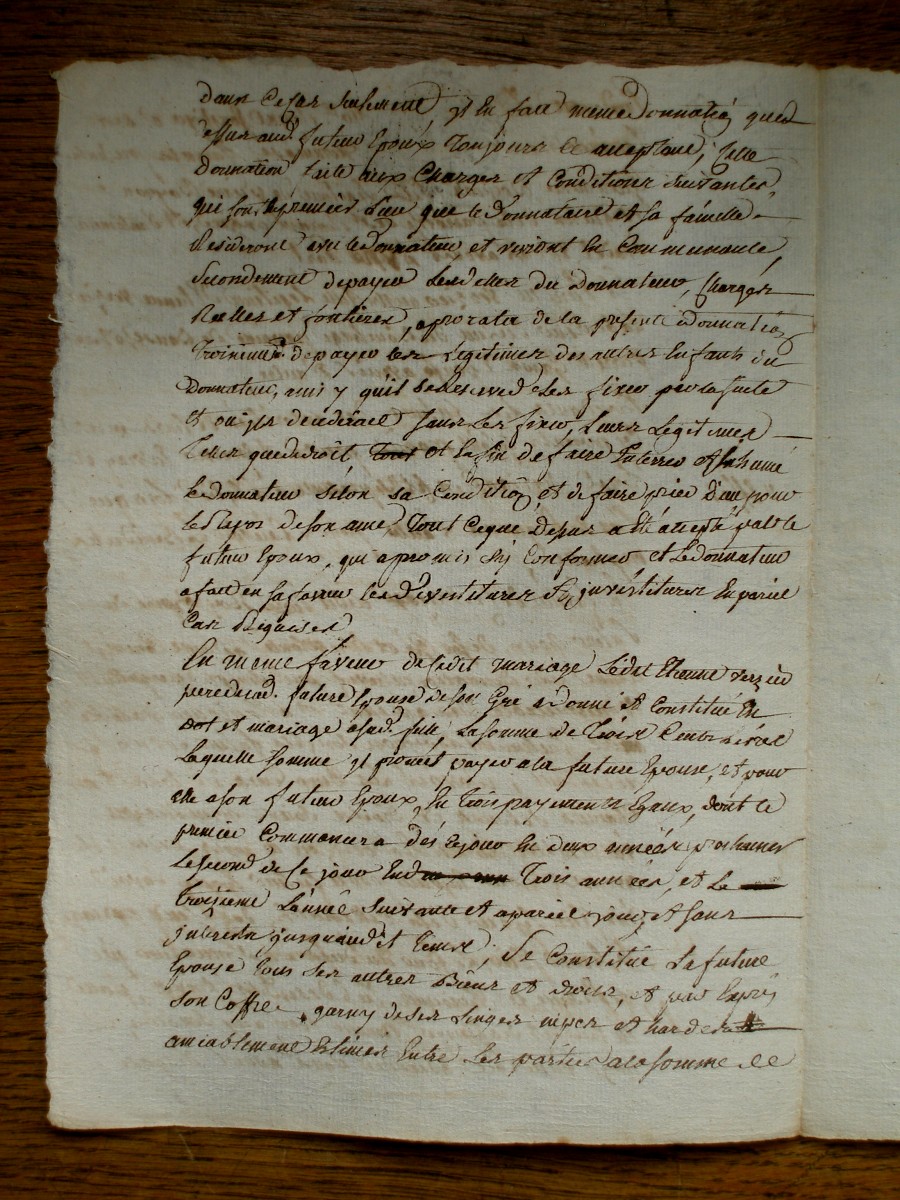 dans ce cas seulement, il en fait meme donnation que d
essus aud. futeur Epoux toujours ce acceptant, Cette
donnation faite aux Charges et Conditions suivantes,
qui sont premier lieu que le Donnataire et sa famille
Resideront avec le Donnateur, et vivront En Communauté,
Secondement de payer les dettes du Donnateur, Charges
Reelles et foncieres, aprorata de la presente Donnation
Troisiem.t de payer les Legitimes des autres Enfants du
Donnateur, ains y qu'il se Reserve de les fixer par la suite
Et ou il decederoit sans les fixer, Leurs Legitimes
Telles que de droit, Tout et Enfin de faire Enterrer
le Donnateur selon sa Condition et de faire prier Dieu pour
le Repos de son ame, Tout Ceque Dessus a été accepté par le
futeur Epoux, qui a promis s'y Conformer, et le donnateur
a fait en sa faveur les Devestitures et investitures En pareil
Cas Requises
En meme faveur de Cedit mariage Ledit Etienne
pere de lad. future Epouse de son Gré a Donné et Constitué En
dot et mariage a sad. fille, La somme de Trois Cents Livres
Laquelle somme il promet payer a la future Epouse, et pour
elle a son futeur Epoux, En trois payements Egaux, dont le
premier Commencera dés cejour En deux années prochaines
Le second de Ce jour En Trois années, et Le
Troisieme L'année suivante et a pareil jour, et sans
interets jusquaud.t Temps; Se Constitue La future
Epouse tous ses autres Biens et droits, et par Exprés
son Coffre, garny de ses Linges nipes et hardes
amiablement Estimés Entre Les parties a la somme de